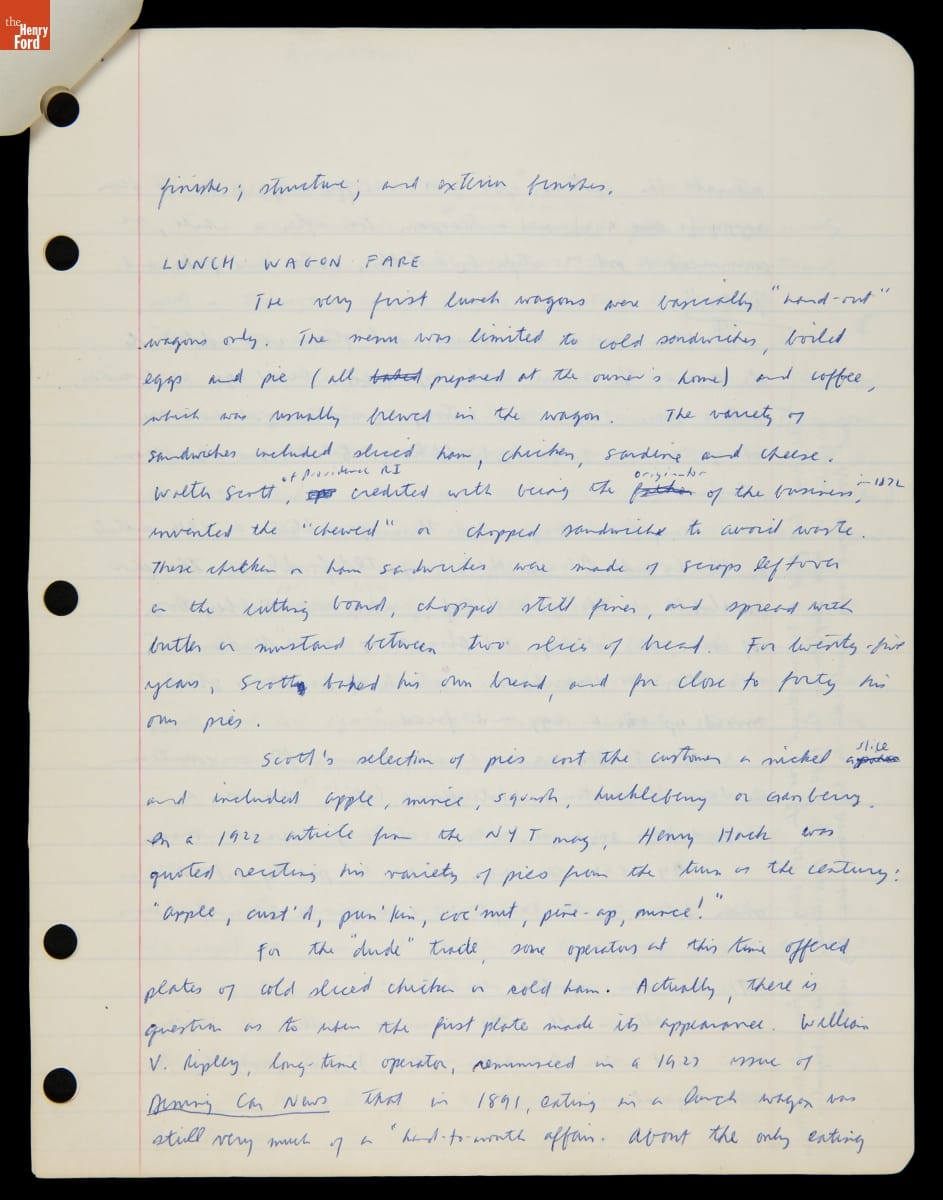 the
Henry
Ford
finishes; structure; and exterior finishes.
LUNCH WAGON FARE
The very first lunch wagons were basically "hand-out"
wagons only. The menu was limited to cold sandwiches, boiled
eggs and pie (all baked prepared at the owner's home) and coffee,
which was usually brewed in the wagon. The variety of
sandwiches included sliced ham, chicken, sardine and cheese.
of Providence RI originator in 1872
Walter Scott, credited with being the father of the business,
invented the "chewed" or chopped sandwich to avoid waste.
These chicken or ham sandwiches were made of scraps leftover
on the cutting board, chopped still finer, and spread with
butter or mustard between two slices of bread. For twenty-five
years, Scott baked his own bread, and for close to forty his
own pies.
slice
Scott's selection of pies cost the customer a nickel a
and included apple, mince, squash, huckleberry or cranberry.
In a 1922 article from the NYT mag, Henry Hack was
quoted reciting his variety of pies from the turn of the century:
"apple, cust'd, pun'kin, coc'nut, pine-ap, mince!"
For the "dude" trade, some operators at this time offered
plates of cold sliced chicken or cold ham. Actually, there is
question as to when the first plate made its appearance. William
V. Ripley, long-time operator, reminisced in a 1927 issue of
Dining Car News that in 1891, eating in a lunch wagon was
still very much of a "hand-to-mouth affair. About the only eating